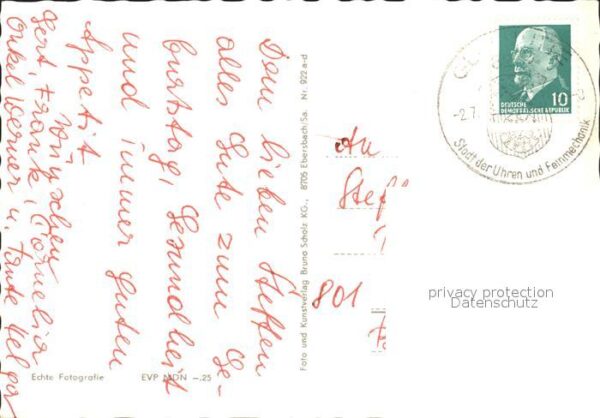 Dem lieben Steffen
alles Gute zum Ge-
burtstag, Gesundheit
und immer guten
Appetit
wünschen
Gert, Frank, Cornelia
Onkel Werner u. Tante Helga
Echte Fotografie EVP MDN –.25
Foto und Kunstverlag Bruno Scholz KG., 8705 Ebersbach/Sa. Nr. 922 a-d
An
Steff
801
DEUTSCHE
DEMOKRATISCHE REPUBLIK
10
-2.7.
Stadt der Uhren und Feinmechanik
privacy protection
Datenschutz